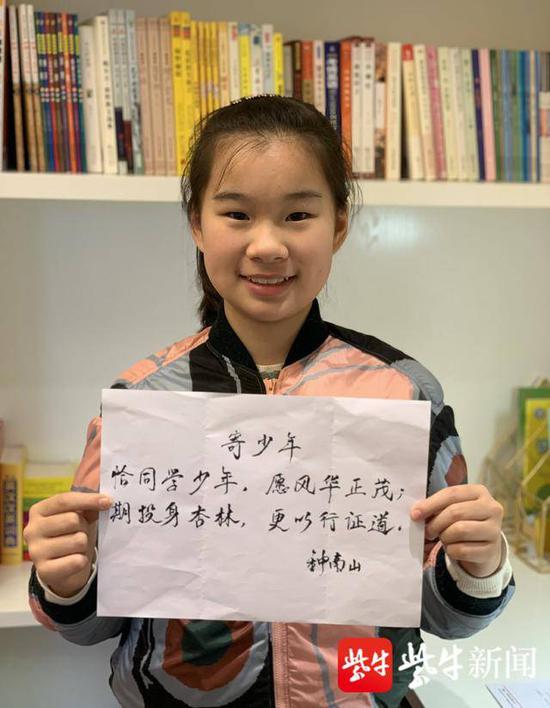 寄少年
恰同学少年，愿风华正茂；
期投身杏林，更以行证道。
钟南山
紫牛 紫牛新闻